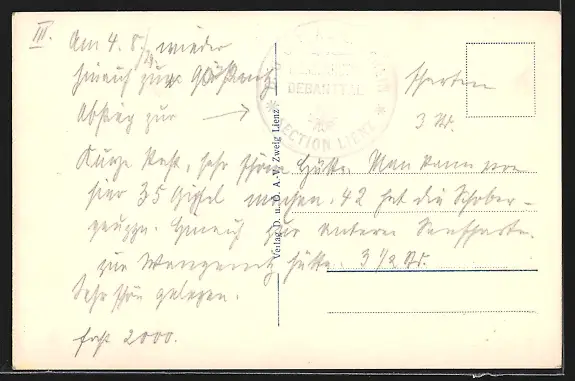 III.
Am 4. 8. wieder
hinauf zur
Abstieg zur → scharten
3 St.
Kurze Rast, sehr schöne Hütte. Man kann von
hier 35 Gipfel machen. 42 hat die Schober-
gruppe. Hinauf zur unteren Seescharte.
zur Wangenitz Hütte. 3 1/2 St.
Sehr schön gelegen.
fast 2000.
DEBANTTAL
* SECTION LIENZ *
Verlag D. u. Ö. A.-V. Zweig Lienz